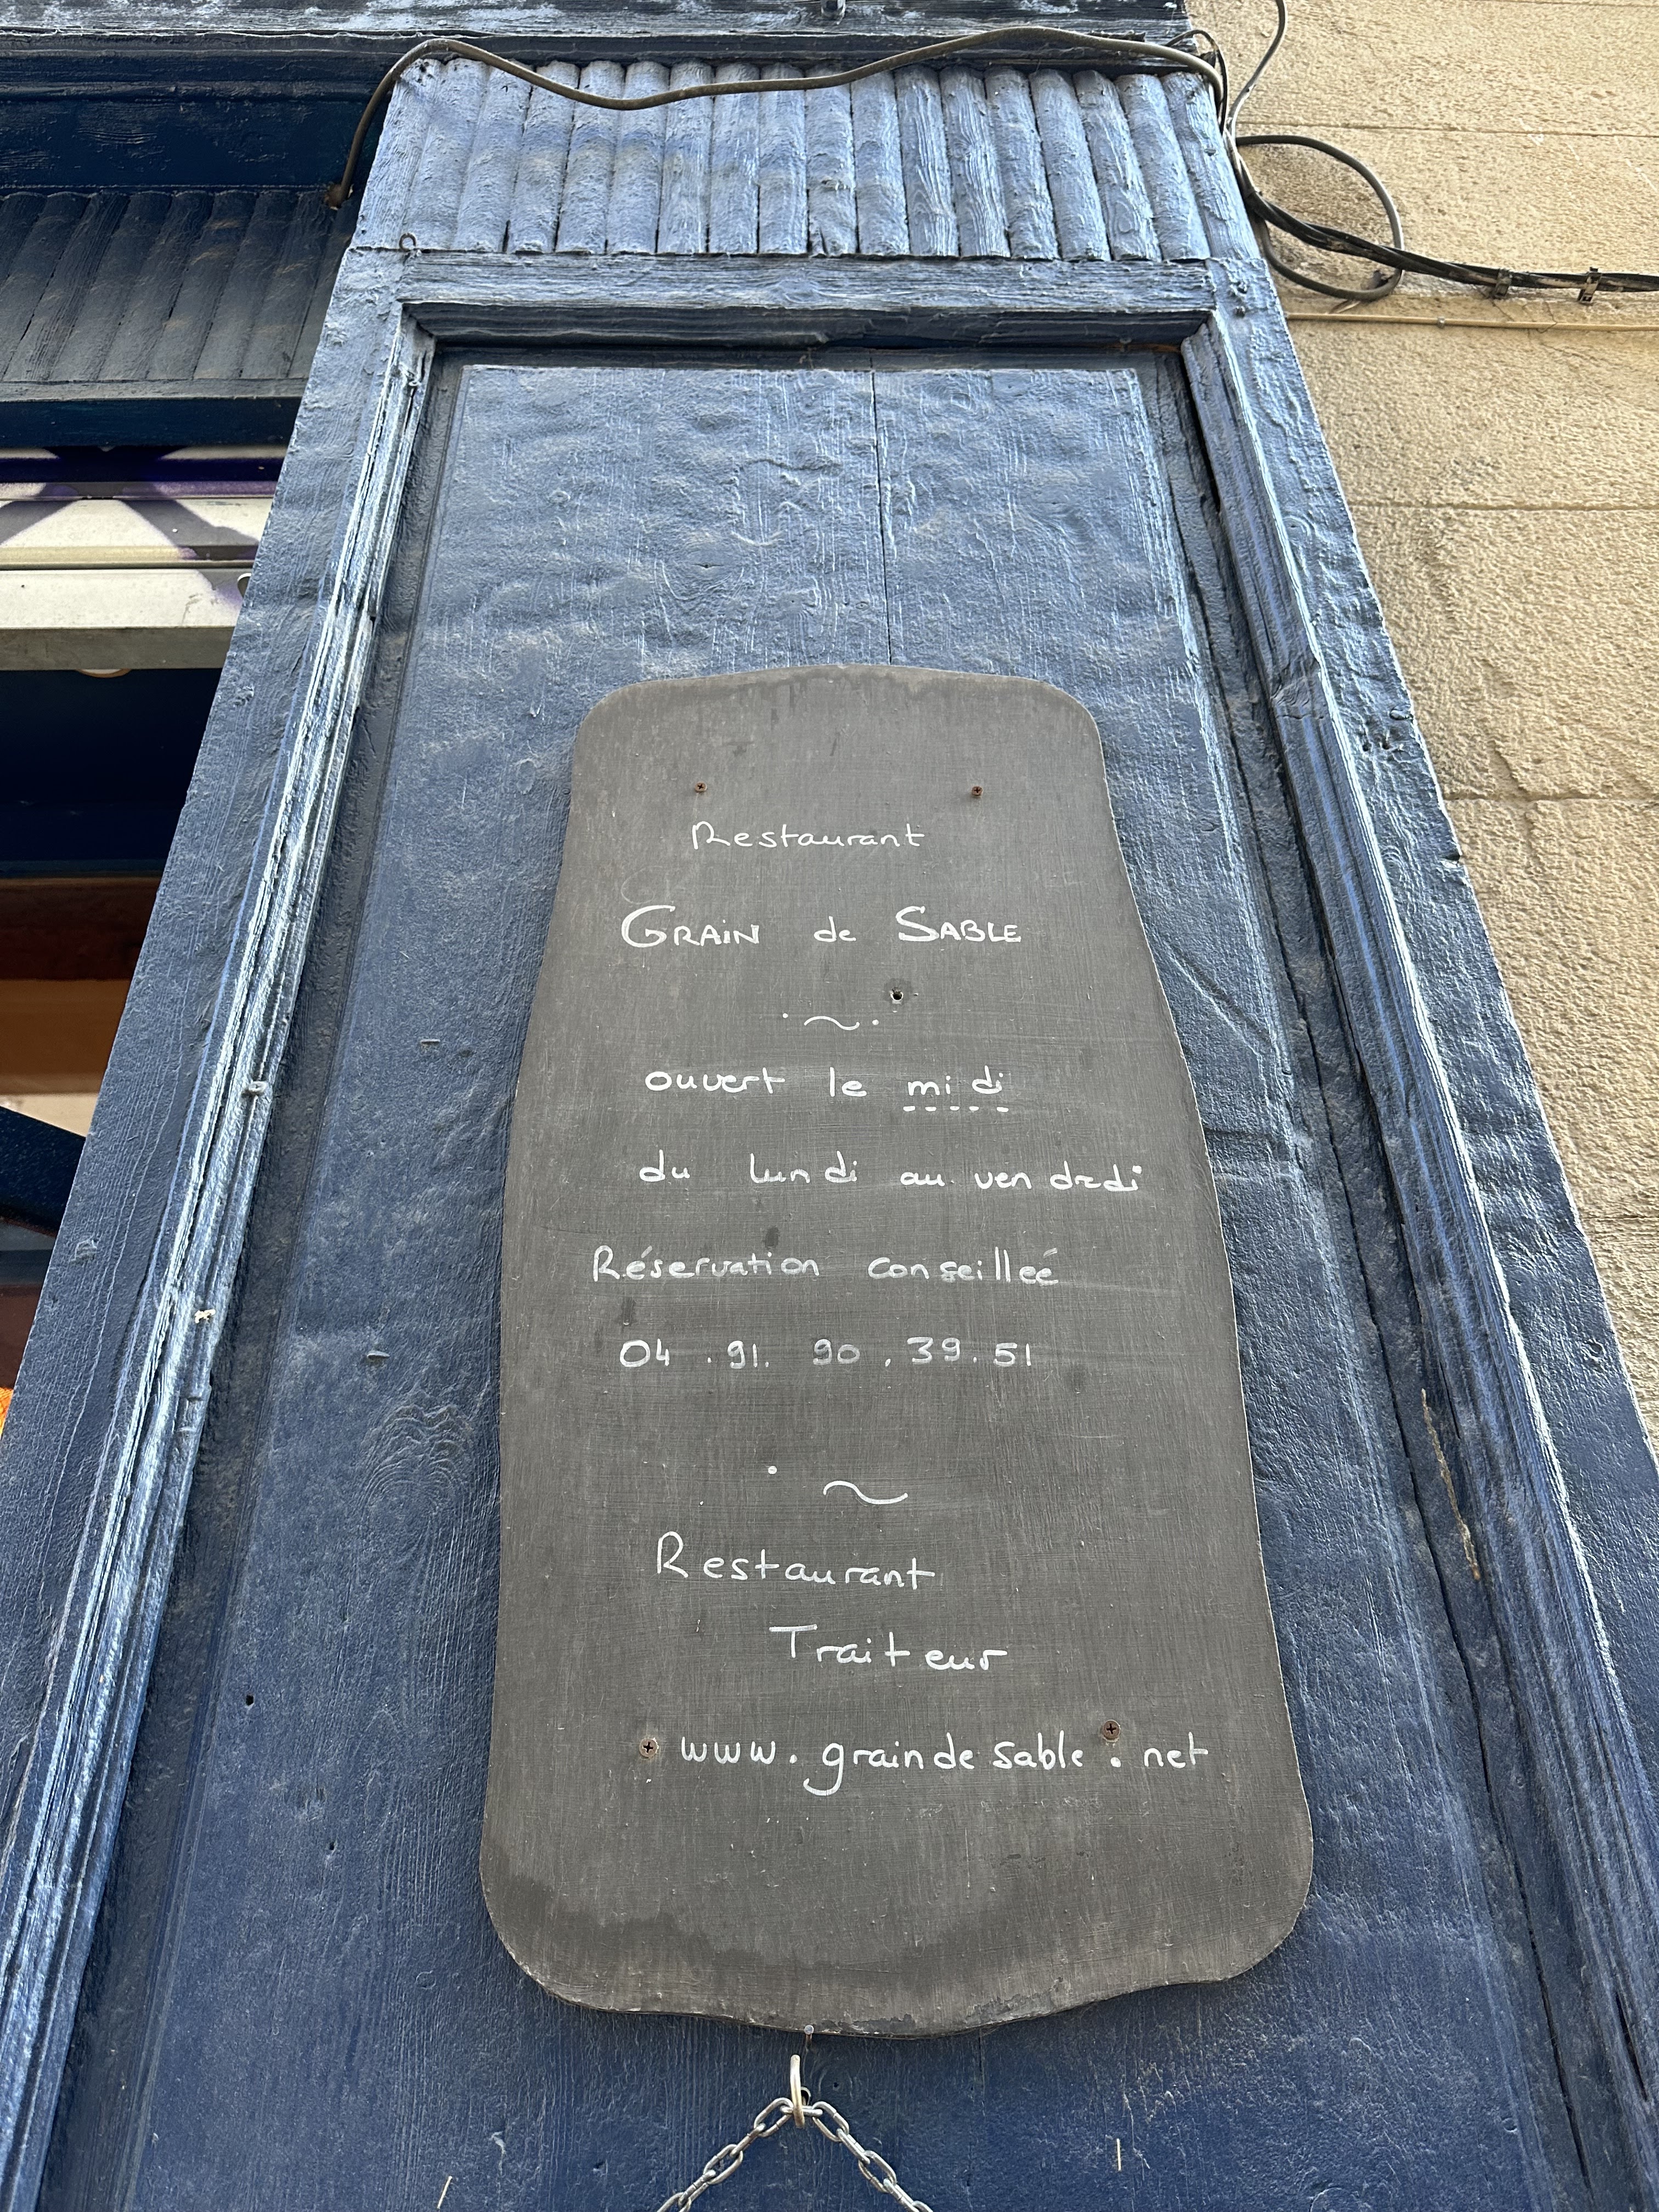 Restaurant
GRAIN de SABLE
ouvert le midi
du lundi au vendredi
Réservation conseilleé
04 .91. 90 . 39. 51
Restaurant
Traiteur
www.graindesable.net